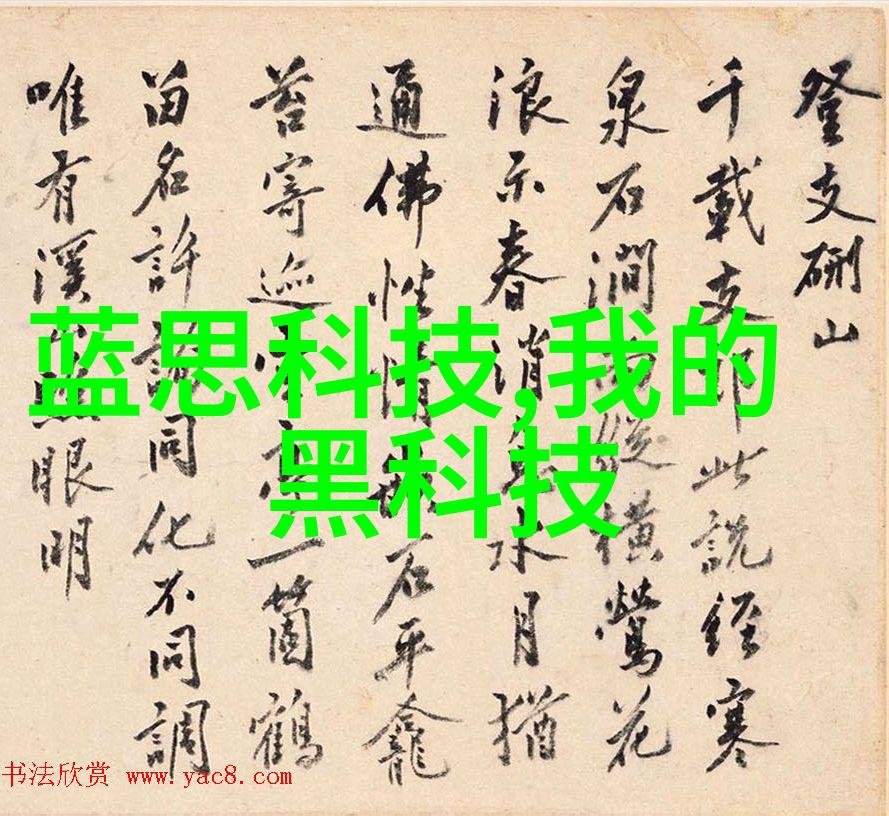 登支硎山
千載支郎此說經寒
泉石澗縱橫鶯花
浪示春消息水月猶
通佛性情石平龕
苔寄巡一箇鶴
留名許同化不同調
唯有溪山照眼明
蓝思科技,我的
黑科技
书法欣赏 www.yac8.com